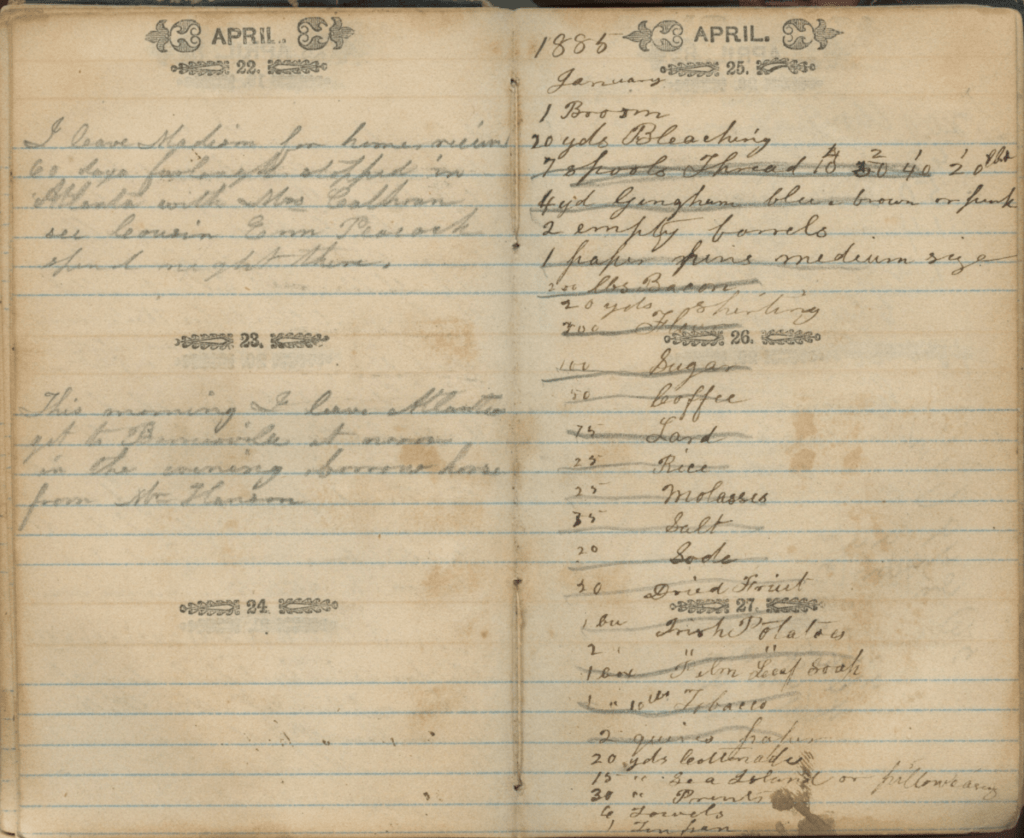 APRIL.
22.
I leave Madison for home, recieve
60 days furlough stopped in
Atlanta with Mrs Calhoun
see Cousin Em Peacock
spend night there.
23.
This morning I leave Atlanta
get to Barnesville at noon
in the evening borrow horse
from Mr Hanson
24.
1885
APRIL.
25.
January
1 Broom
20 yds Bleaching
7 spools Thread 40 20
4 yd Gingham blue brown or pink
2 empty barrels
1 paper pins medium size
200 lbs Bacon
20 yds shirting
300 Flour
26.
100 Sugar
50 Coffee
75 Lard
25 Rice
25 Molasses
35 Salt
20 Soda
50 Dried Fruit
27.
1 bu Irish Potatoes
2 " "
1 box Palm Leaf Soap
1 " 10 lbs Tobacco
2 quires paper
20 yds Cottonade
15 " Sea Island or pillowcasing
30 " Prints
6 Towels
1 Tin pan